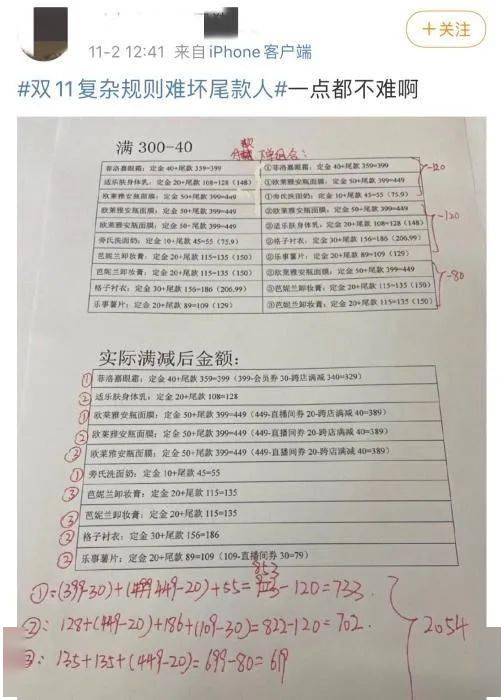 +关注
11-2 12:41 来自iPhone客户端
#双11复杂规则难坏尾款人#一点都不难啊
满 300-40
下单组合：
菲洛嘉眼霜：定金 40+尾款 359=399
①菲洛嘉眼霜：定金 40+尾款 359=399
-120
适乐肤身体乳：定金 20+尾款 108=128（148）
①欧莱雅安瓶面膜：定金 50+尾款 399=449
欧莱雅安瓶面膜：定金 50+尾款 399=449
①旁氏洗面奶：定金 10+尾款 45=55（75.9）
欧莱雅安瓶面膜：定金 50+尾款 399=449
②欧莱雅安瓶面膜：定金 50+尾款 399=449
-120
欧莱雅安瓶面膜：定金 50+尾款 399=449
②适乐肤身体乳：定金 20+尾款 108=128（148）
旁氏洗面奶：定金 10+尾款 45=55（75.9）
②格子衬衣：定金 30+尾款 156=186（206.99）
芭妮兰卸妆膏：定金 20+尾款 115=135（150）
②乐事薯片：定金 20+尾款 89=109（129）
芭妮兰卸妆膏：定金 20+尾款 115=135（150）
③欧莱雅安瓶面膜：定金 50+尾款 399=449
-80
格子衬衣：定金 30+尾款 156=186（206.99）
③芭妮兰卸妆膏：定金 20+尾款 115=135（150）
乐事薯片：定金 20+尾款 89=109（129）
③芭妮兰卸妆膏：定金 20+尾款 115=135（150）
实际满减后金额：
① 菲洛嘉眼霜：定金 40+尾款 359=399（399-会员券 30-跨店满减 340=329）
② 适乐肤身体乳：定金 20+尾款 108=128
① 欧莱雅安瓶面膜：定金 50+尾款 399=449（449-直播间券 20-跨店满减 40=389）
② 欧莱雅安瓶面膜：定金 50+尾款 399=449（449-直播间券 20-跨店满减 40=389）
欧莱雅安瓶面膜：定金 50+尾款 399=449（449-直播间券 20-跨店满减 40=389）
① 旁氏洗面奶：定金 10+尾款 45=55
③ 芭妮兰卸妆膏：定金 20+尾款 115=135
③ 芭妮兰卸妆膏：定金 20+尾款 115=135
② 格子衬衣：定金 30+尾款 156=186
② 乐事薯片：定金 20+尾款 89=109（109-直播间券 30=79）
853
①=(399-30)+(449-20)+55=-120=733
②: 128+(449-20)+186+(109-30)=822-120=702.
2054
③: 135+135+(449-20)=699-80=619